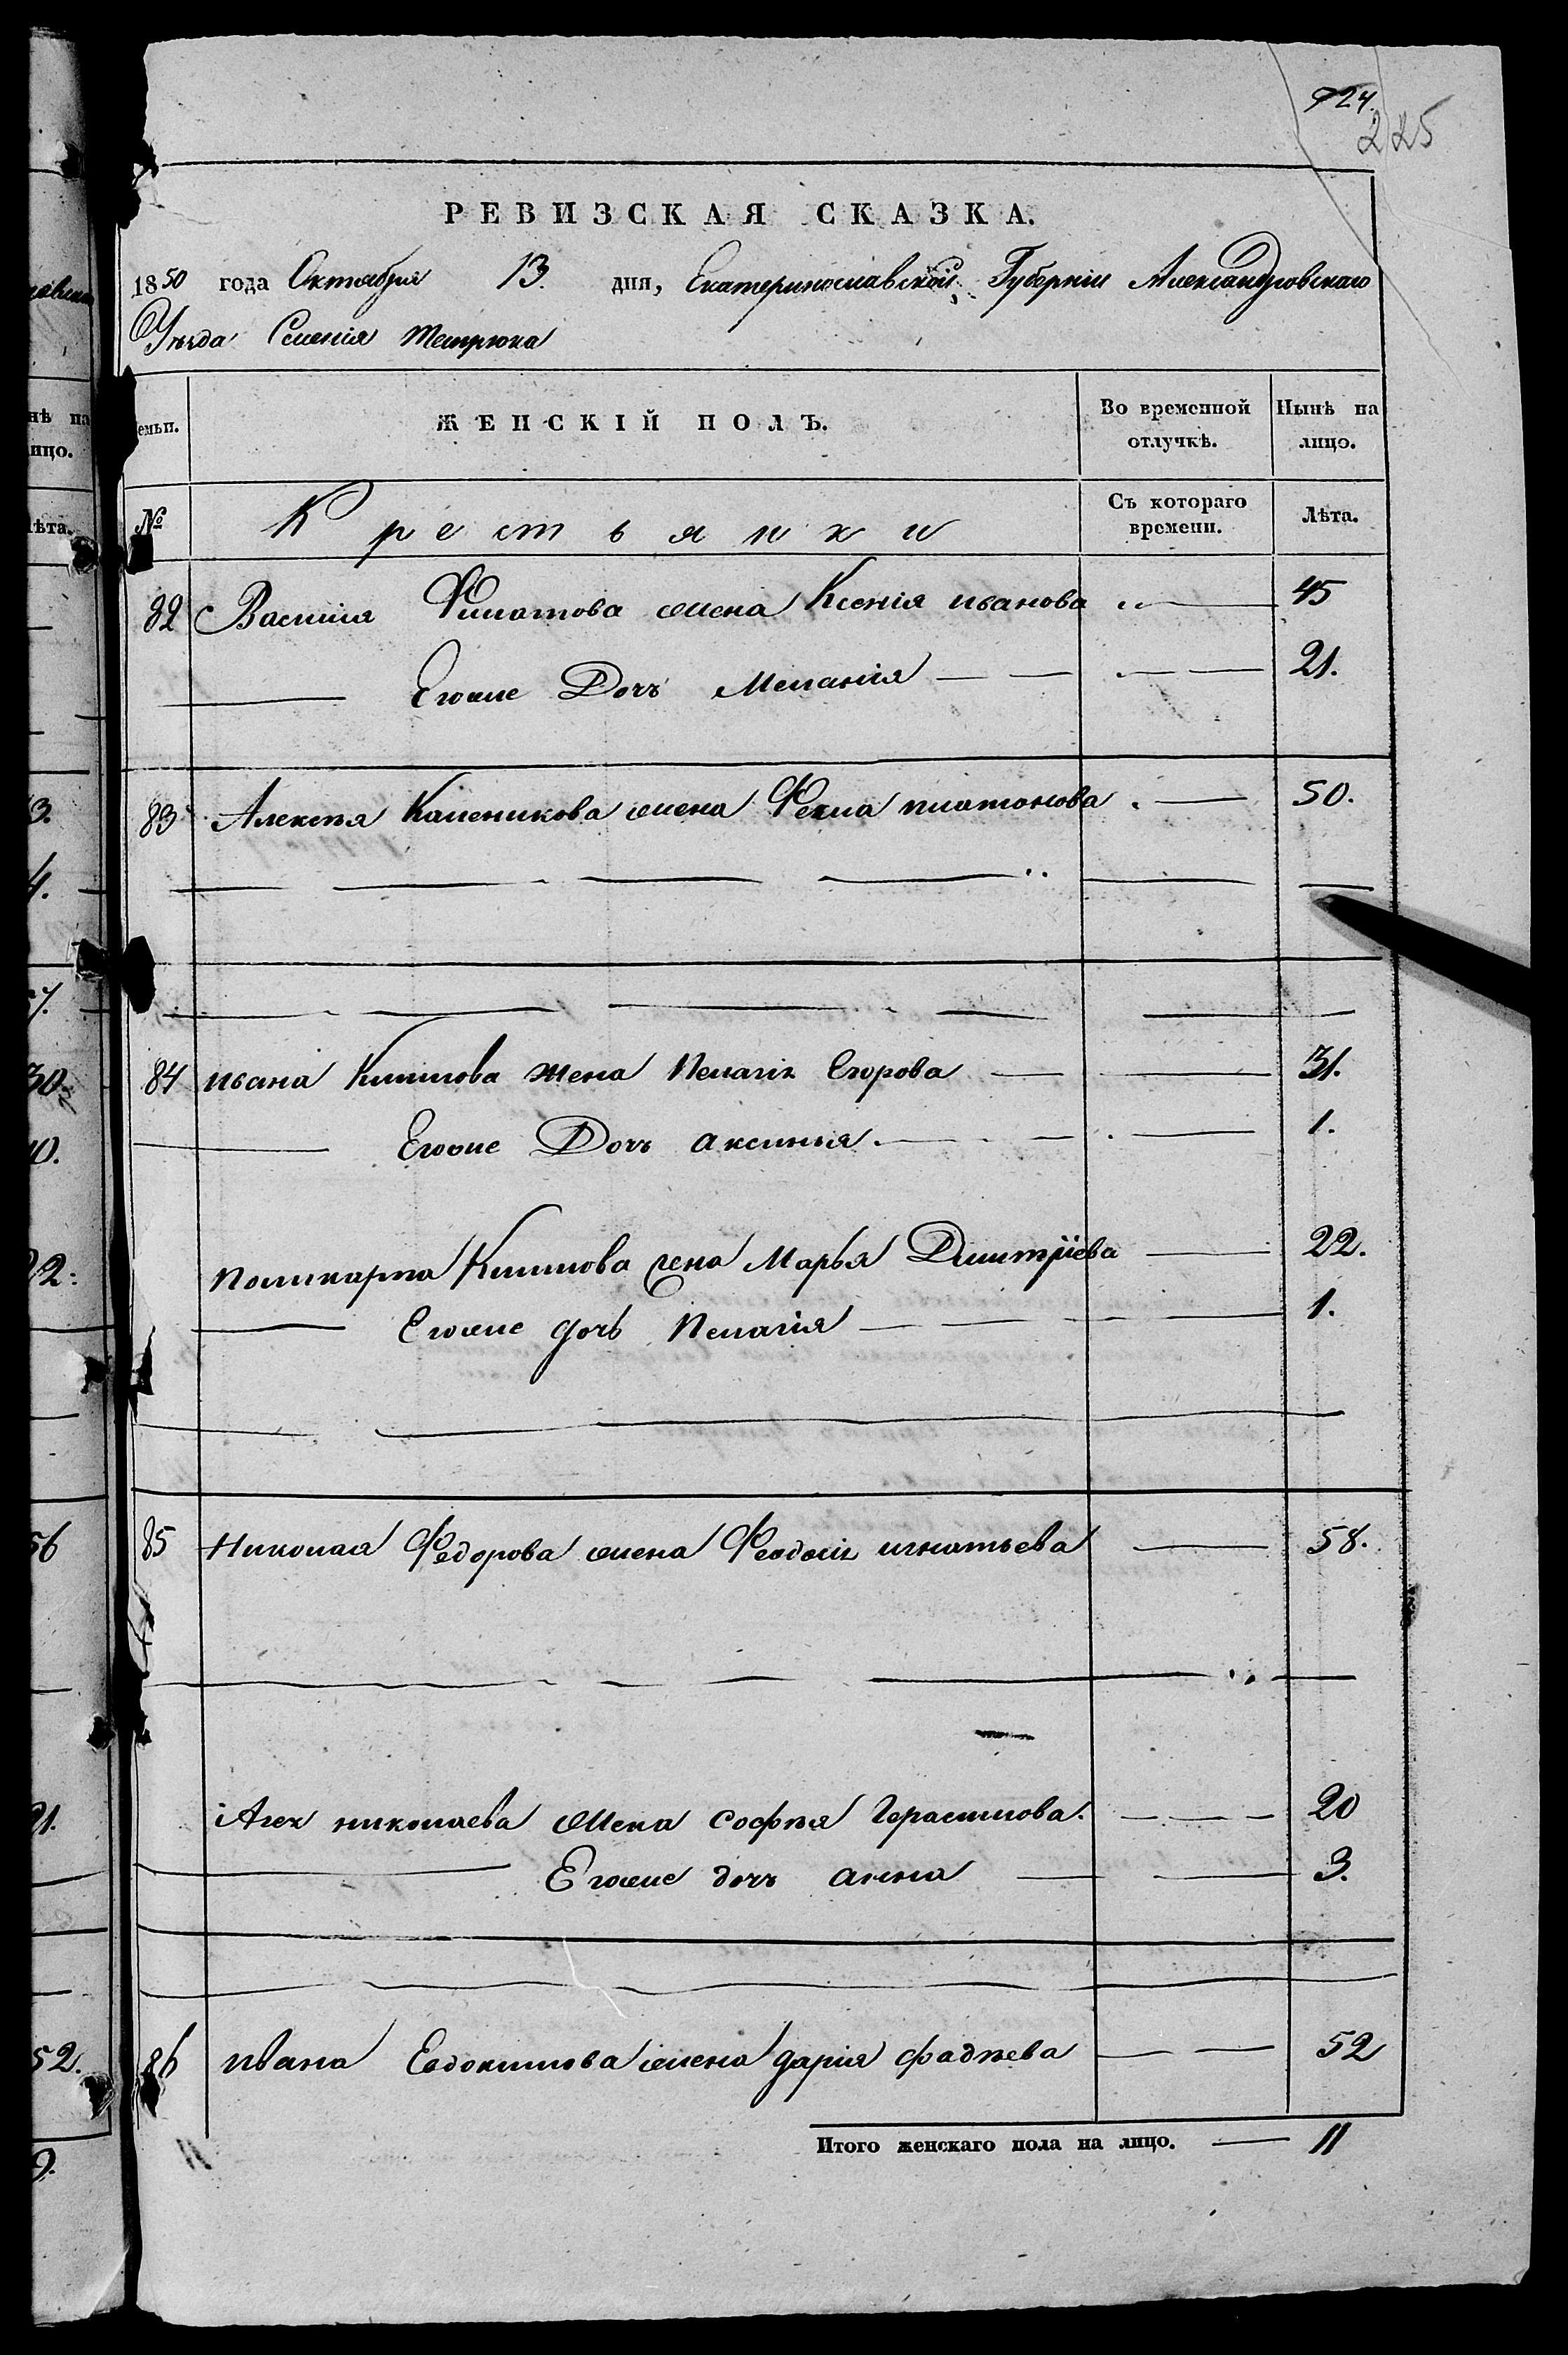 724.
225
РЕВИЗСКАЯ СКАЗКА.
1850 года Октября 13. дня, Екатеринославской Губернiи Александровскаго
Уѣзда Селенiя Темрюка
ЖЕНСКIЙ ПОЛЪ.
Во временной отлучкѣ.
Нынѣ на лицо.
емьи.
№
Крестьянки
Съ котораго времени.
Лѣта.
82 Василiя Филатова жена Ксенiя иванова 45
Егоже Дочъ Меланiя 21.
83 Алексѣя Каленикова жена Фекла платонова 50.
84 ивана Климова жена Пелагiя Егорова 31.
Егоже Дочъ аксинья 1.
Поликарпа Климова жена Марья Дмитрiева 22.
Егоже дочь Пелагiя 1.
85 Николая Федорова жена Феодосiя игнатьева 58.
николаева жена софья Герасимова. 20
Егоже дочъ анна 3.
86 ивана Евдокимова жена дарiя фадѣева 52
Итого женскаго пола на лицо. 11